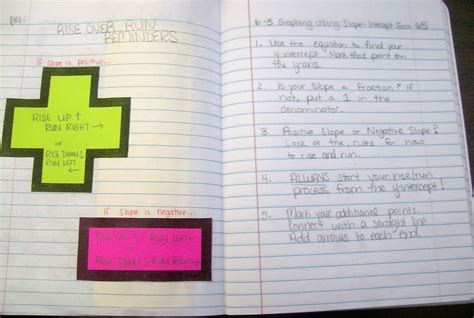 64
RISE OVER RUN
REMINDERS
If slope is positive...
RISE UP ↑
RUN RIGHT →
or
RISE DOWN ↓
RUN LEFT
←
If slope is negative...
RISE UP ↑ RUN LEFT ←
or
RISE DOWN ↓, RUN RIGHT →
6-5 Graphing Using Slope-Intercept Form 65
1. Use the equation to find your
y-intercept. Mark that point on
the y-axis.
2. Is your slope a fraction? If
not, put a 1 in the
denominator.
3. Positive Slope or Negative Slope?
Look at the rules for how
to rise and run.
4. ALWAYS start your rise/run
process from the y-intercept!
5. Mark your additional points.
Connect with a straight line.
Add arrows to each end.